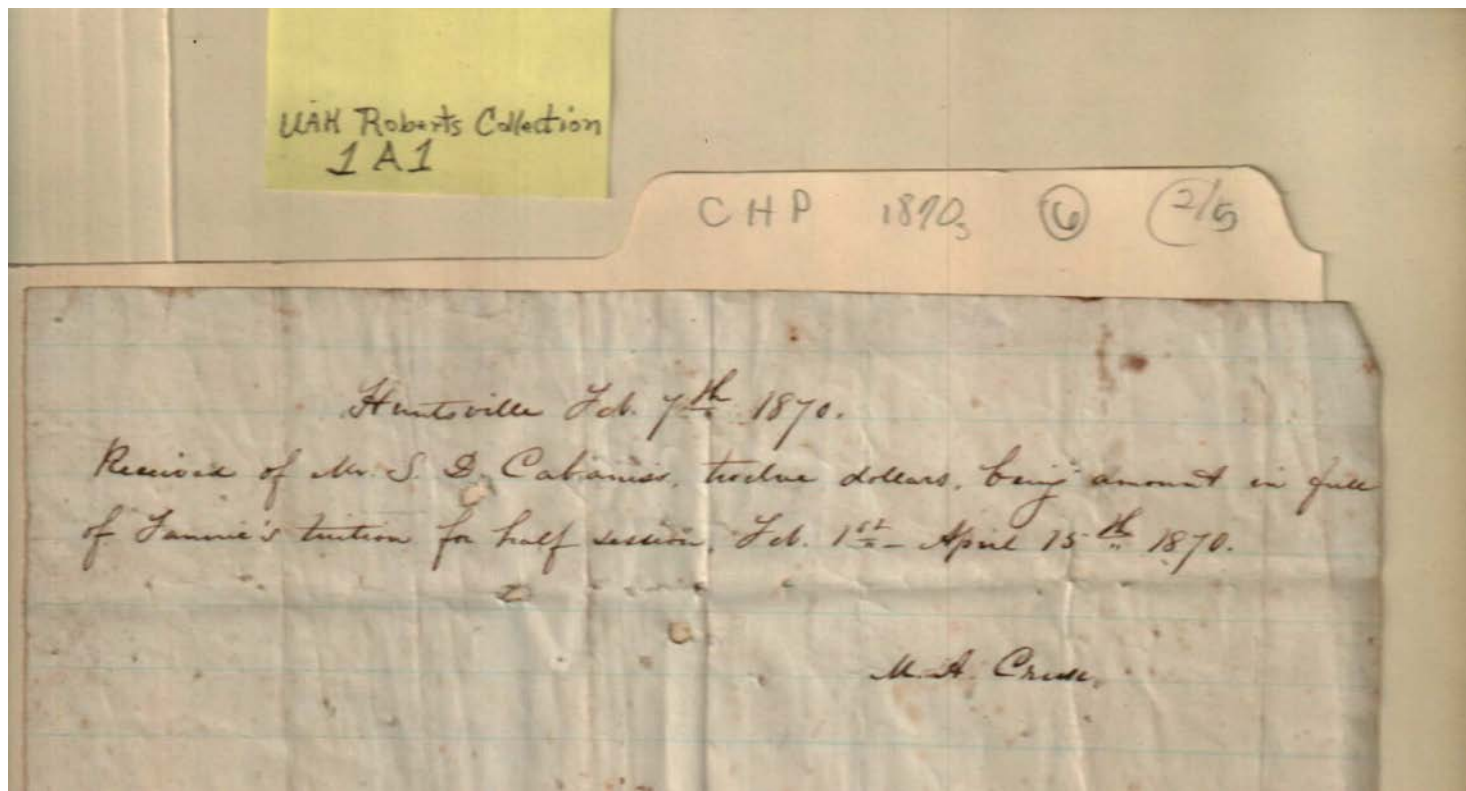 UAH Roberts Collection
1A1
CHP 1870s 6 (2/5
Huntsville Feb. 7th 1870.
Received of Mr. S. D. Cabaniss, twelve dollars, being amount in full
of Fannie's tuition for half session, Feb. 1st - April 15th 1870.
M. A. Cruse.